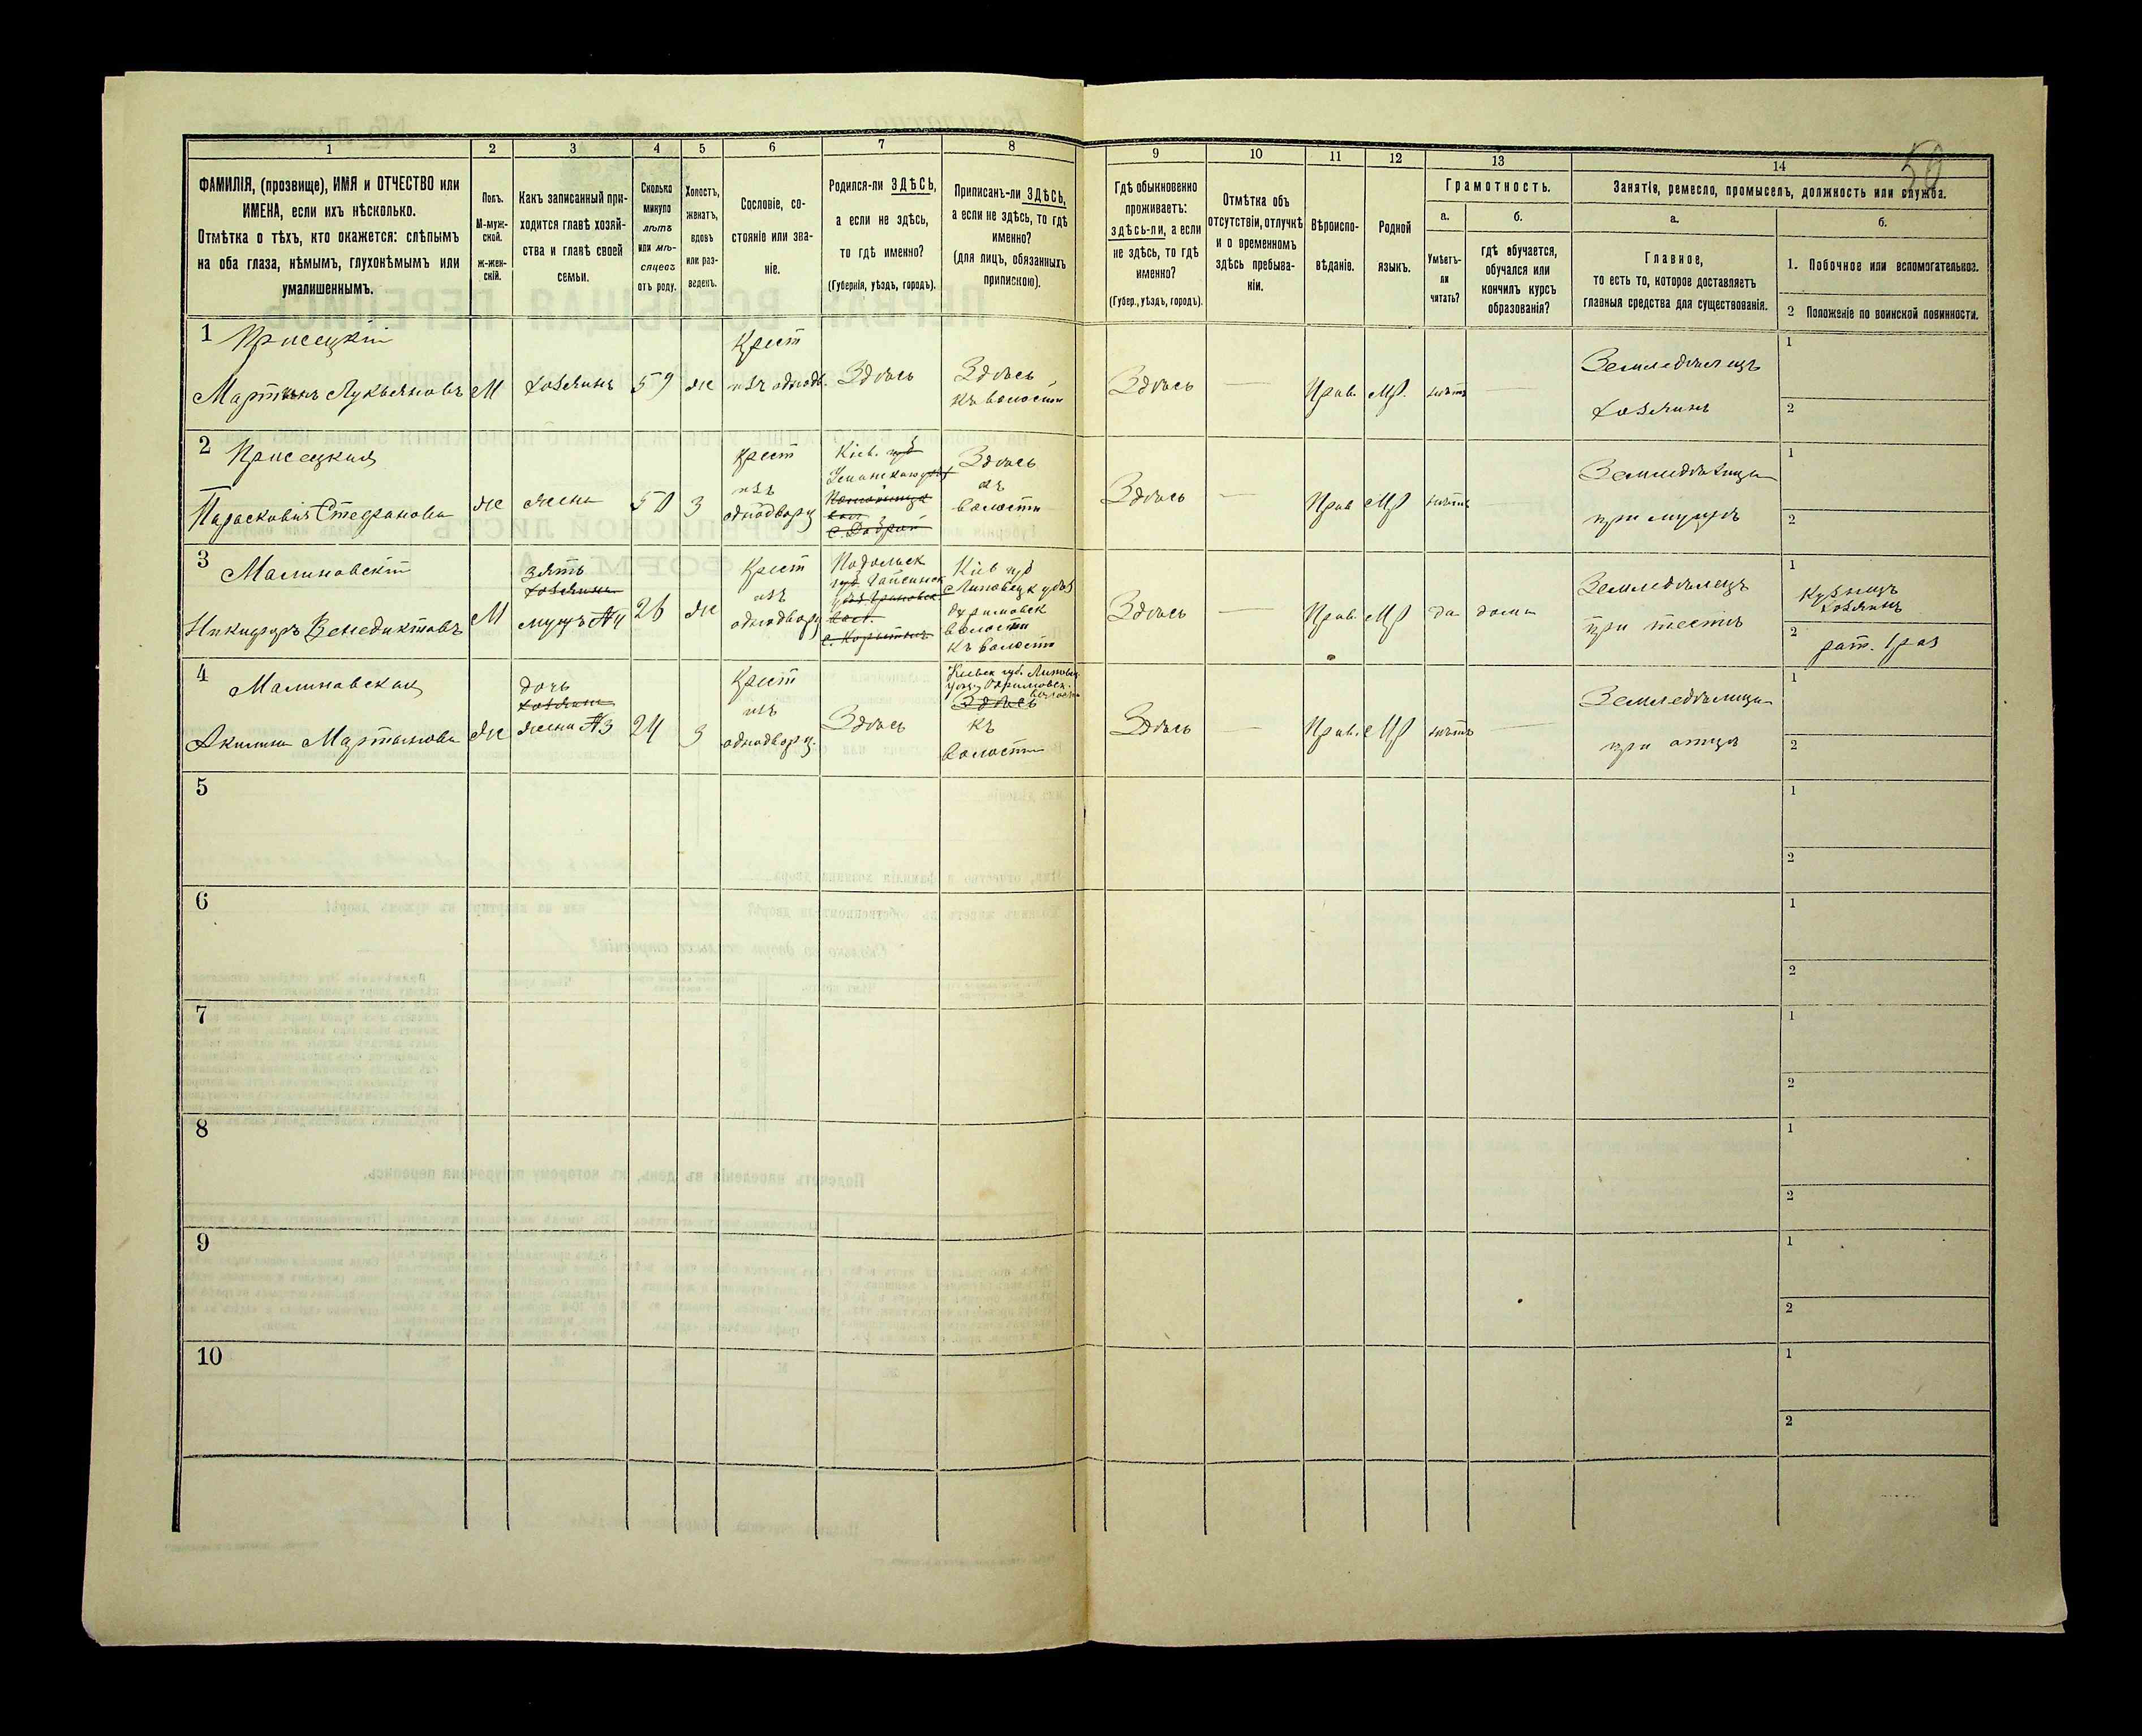 50
1
2
3
4
5
6
7
8
9
10
11
12
13
14
ФАМИЛІЯ, (прозвище), ИМЯ и ОТЧЕСТВО или
ИМЕНА, если ихъ нѣсколько.
Отмѣтка о тѣхъ, кто окажется: слѣпымъ
на оба глаза, нѣмымъ, глухонѣмымъ или
умалишеннымъ.
Полъ.
М-муж-
ской.
ж-жен-
скій.
Какъ записанный при-
ходится главѣ хозяй-
ства и главѣ своей
семьи.
Сколько
минуло
лѣтъ
или мѣ-
сяцевъ
отъ роду.
Холостъ,
женатъ,
вдовъ
или раз-
веденъ.
Сословіе, со-
стояніе или зва-
ніе.
Родился-ли ЗДѢСЬ,
а если не здѣсь,
то гдѣ именно?
(Губернія, уѣздъ, городъ).
Приписанъ-ли ЗДѢСЬ,
а если не здѣсь, то гдѣ
именно?
(для лицъ, обязанныхъ
припискою).
Гдѣ обыкновенно
проживаетъ:
здѣсь-ли, а если
не здѣсь, то гдѣ
именно?
(Губер., уѣздъ, городъ).
Отмѣтка объ
отсутствіи, отлучкѣ
и о временномъ
здѣсь пребыва-
ніи.
Вѣроиспо-
вѣданіе.
Родной
языкъ.
Грамотность.
а.
Умѣетъ-
ли
читать?
б.
гдѣ обучается,
обучался или
кончилъ курсъ
образованія?
Занятіе, ремесло, промыселъ, должность или служба.
а.
Главное,
то есть то, которое доставляетъ
главныя средства для существованія.
б.
1. Побочное или вспомогательное.
2 Положеніе по воинской повинности.
1 Присецкій
Мартынъ Лукьяновъ
М
хозяинъ
59
ж
Крест
изъ однодв.
Здѣсь
Здѣсь
къ волости
Здѣсь
—
Прав.
Мр.
нѣтъ
—
Земледѣлецъ
хозяинъ
1
2
2 Присецкая
Параскевия Стефанова
ж
жена
50
З
крест
изъ
однодворц
Кіев. губ
Уманскаго уѣз
Здѣсь
къ
волости
Здѣсь
—
Прав
Мр
нѣтъ
Земледѣлица
при мужѣ
1
2
3 Малиновскій
Никифоръ Венедиктовъ
М
зять
хозяина
мужъ №4
26
ж
Крест
изъ
однодворц
Подольск
губ Гайсинск
волост.
Кіев губ
Липовецк уѣзд
волости
къ волости
Здѣсь
—
Прав.
Мр
да
дома
Земледѣлецъ
при тестѣ
1
Кузнецъ
хозяинъ
2
рат. 1 раз
4 Малиновская
Акилина Мартынова
ж
дочь
хозяина
жена №3
24
З
Крест
изъ
однодворц.
Здѣсь
Здѣсь
къ
волости
Здѣсь
—
Прав.
Мр
нѣтъ
—
Земледѣлица
при отцѣ
1
2
5
1
2
6
1
2
7
1
2
8
1
2
9
1
2
10
1
2